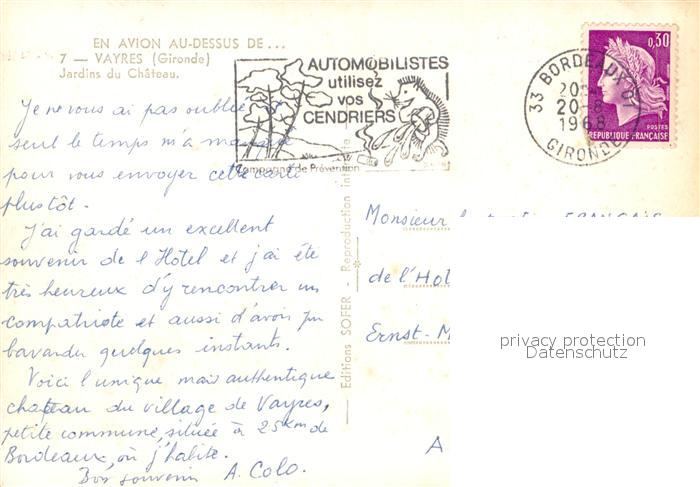 EN AVION AU-DESSUS DE...
7 — VAYRES (Gironde)
Jardins du Château.
AUTOMOBILISTES
utilisez
vos
CENDRIERS
Campagne de Prévention
0,30
POSTES
REPUBLIQUE FRANÇAISE
33 BORDEAUX
20-8
1968
GIRONDE
Je ne vous ai pas oublié et
seul le temps m'a manqué
pour vous envoyer cette carte
plus tôt.
J'ai gardé un excellent
souvenir de l'Hotel et j'ai été
très heureux d'y rencontrer un
compatriote et aussi d'avoir pu
bavarder quelques instants.
Voici l'unique mais authentique
chateau du village de Vayres,
petite commune, située à 25 km de
Bordeaux, où j'habite.
Bon souvenir A. Colo.
Editions SOFER - Reproduction interdite
Monsieur
de l'Hot
Ernst-M
A
privacy protection
Datenschutz